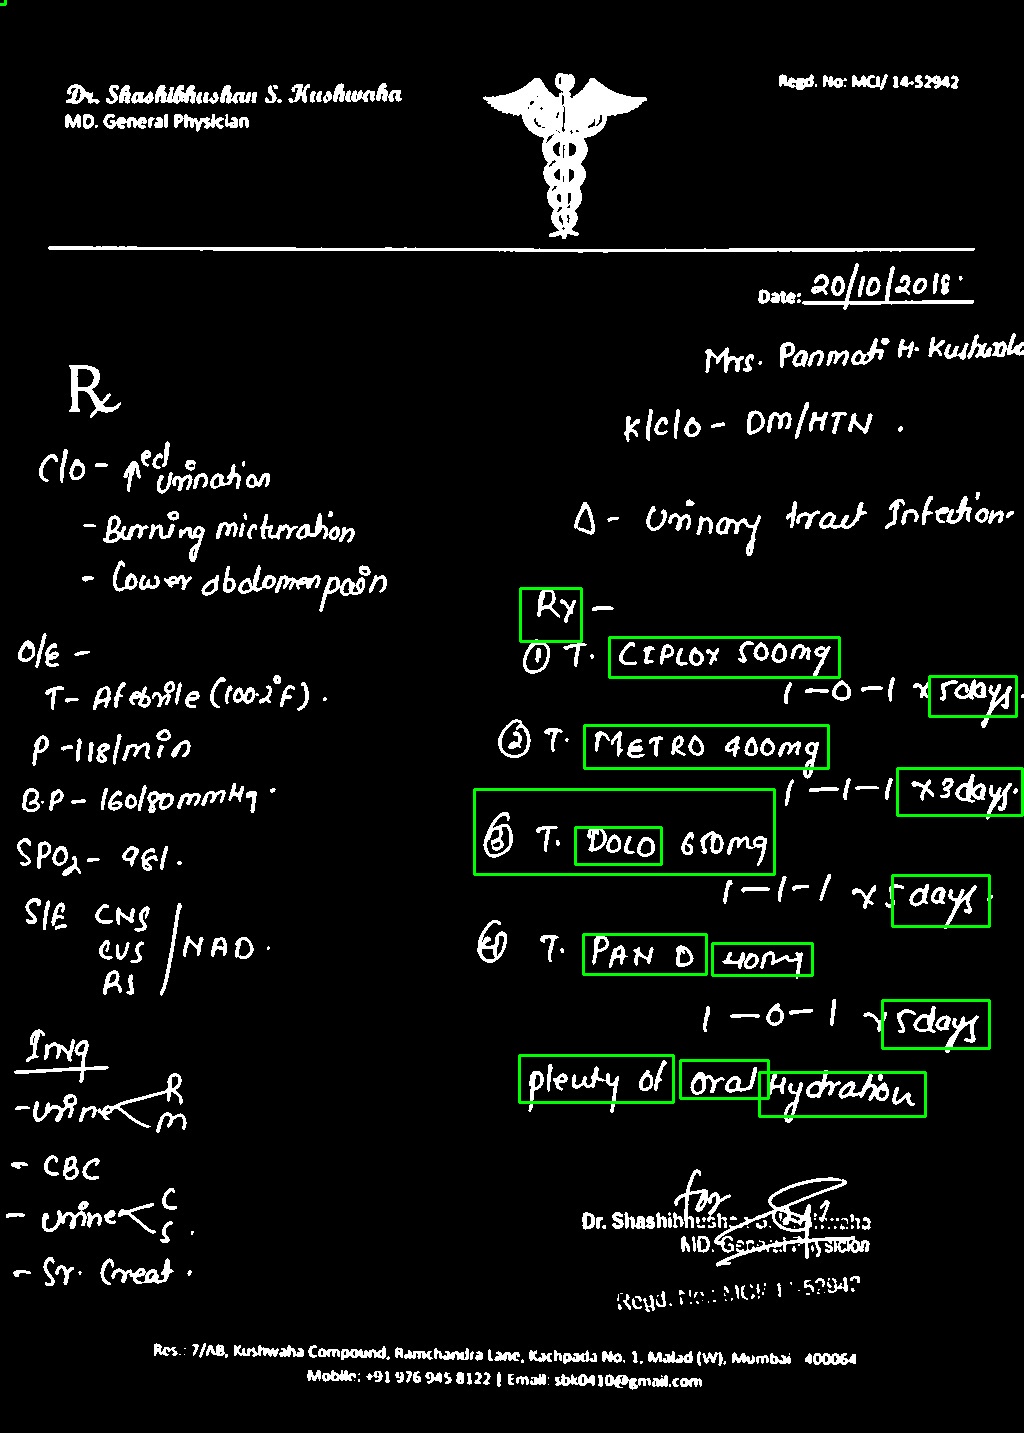 Dr. Shashibhushan S. Kushwaha
MD. General Physician
Regd. No: MCI/ 14-52942
Date: 20/10/2018.
Mrs. Panmati H. Kushwaha
Rx
K/C/O - DM/HTN .
C/O - ↑ed urination
- Burning micturration
- Lower abdomen pain
Δ - Urinary tract Infection.
O/E -
T - Afebrile (100.2°F) .
P - 118/min
B.P - 160/80mmHg .
SPO2 - 98%.
S/E CNS
CVS
RS
/ NAD .
Imq
- urine R
M
- CBC
- urine C
S .
- Sr. Creat .
Rx -
① T. CIPLOX 500mg
1 - 0 - 1 x 5days.
② T. METRO 400mg
1 - 1 - 1 x 3days.
③ T. DOLO 650mg
1 - 1 - 1 x 5 days.
④ T. PAN D 40mg
1 - 0 - 1 x 5days
plenty of oral Hydration
for
Dr. Shashibhushan S. Kushwaha
MD. General Physician
Regd. No.: MCI/ 14-52942
Res.: 7/AB, Kushwaha Compound, Ramchandra Lane, Kachpada No. 1, Malad (W), Mumbai 400064
Mobile: +91 976 945 8122 | Email: sbk0410@gmail.com